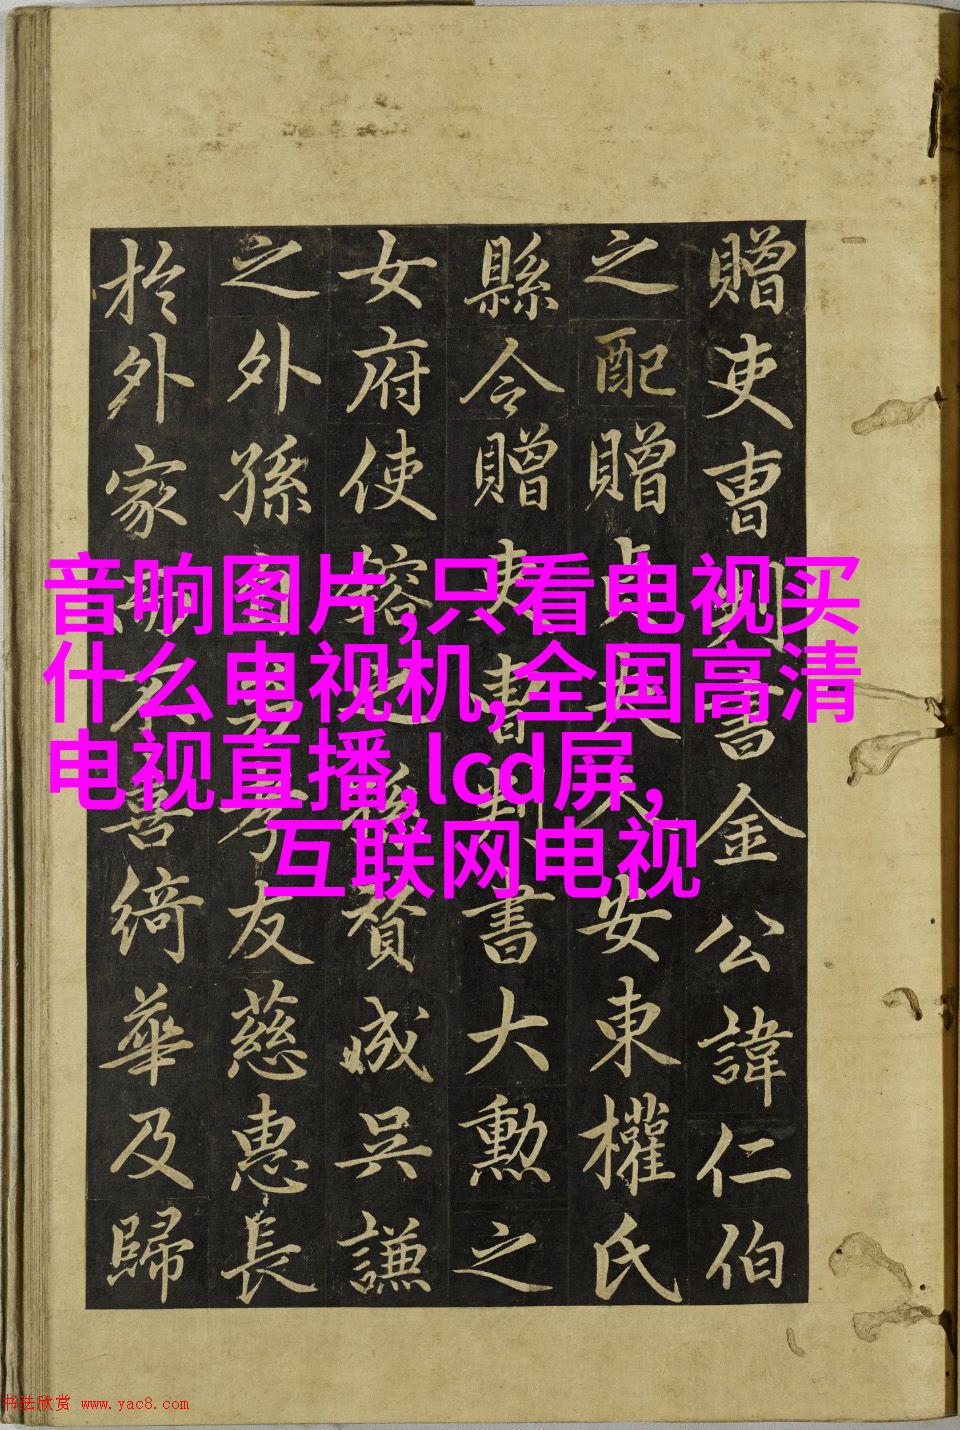 音响图片,只看电视买
什么电视机,全国高清
电视直播,lcd屏,
互联网电视
贈吏曹判書金公諱仁伯
之配贈貞夫人安東權氏
縣令贈吏曹判書大勳之
女府使之孫賛成吳謙
之外孫自孝友慈惠長
於外家不喜綺華及歸
书法欣赏 www.yac8.com